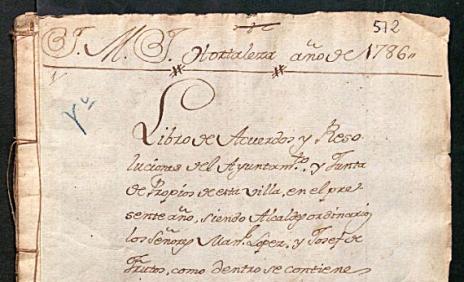 512
J. M. J. Hortaleza año de 1786
Libro de Acuerdos y Reso
luciones del Ayuntam.to y Junta
de Propios de esta Villa, en el pre
sente año, siendo Alcaldes ordinarios
los Señores Man.l Lopez, y Josef de
Frutos, como dentro se contiene